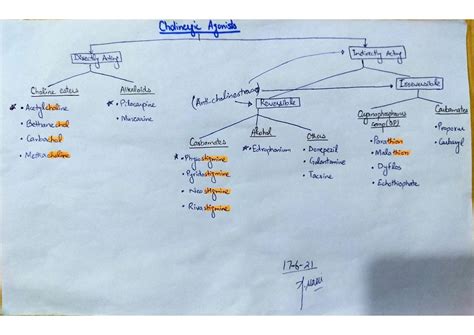 Cholinergic Agonists
Directly Acting
Indirectly Acting
Choline esters
* Acetylcholine
• Bethanechol
• Carbachol
• Methacholine
Alkaloids
* Pilocarpine
• Muscarine
(Anti-cholinesterases)
Reversible
Irreversible
Carbamates
* Physostigmine
• Pyridostigmine
• Neostigmine
• Rivastigmine
Alcohol
* Edrophonium
Others
• Donepezil
• Galantamine
• Tacrine
Organophosphorus
Comp (OP)
• Parathion
• Malathion
• Dyflos
• Echothiophate
Carbamates
• Propoxur
• Carbaryl
17-6-21